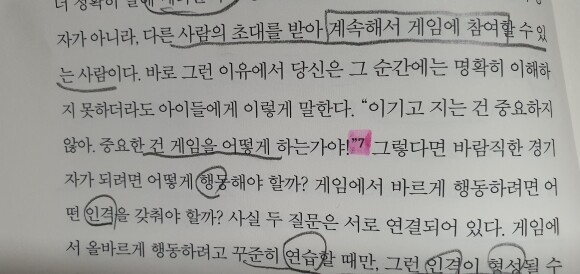 더 정확히 말해
자가 아니라, 다른 사람의 초대를 받아 계속해서 게임에 참여할 수 있
는 사람이다. 바로 그런 이유에서 당신은 그 순간에는 명확히 이해하
지 못하더라도 아이들에게 이렇게 말한다. “이기고 지는 건 중요하지
않아. 중요한 건 게임을 어떻게 하는가야!”7 그렇다면 바람직한 경기
자가 되려면 어떻게 행동해야 할까? 게임에서 바르게 행동하려면 어
떤 인격을 갖춰야 할까? 사실 두 질문은 서로 연결되어 있다. 게임에
서 올바르게 행동하려고 꾸준히 연습할 때만, 그런 인격이 형성될 수